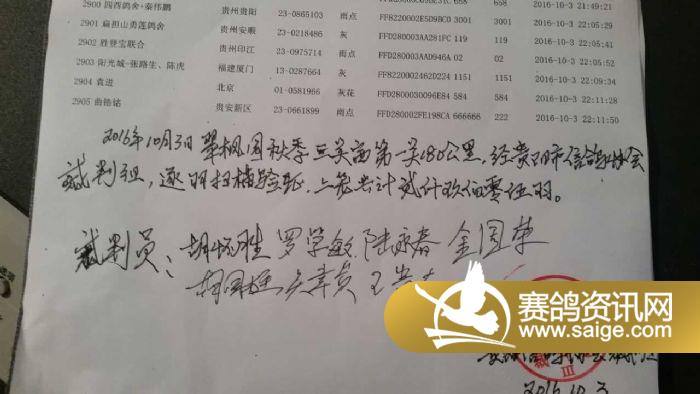 2900 四西鸽舍-秦伟鹏 贵州贵阳 23-0865103 雨点 FFB220002E5D9BC0 3001 3001 2016-10-3 22:05:29
2901 扁担山勇莲鸽舍 贵州安顺 23-0218486 灰 FFD280003AA281FC 119 119 2016-10-3 22:05:41
2902 胜登宝联合 贵州印江 23-0975714 雨点 FFD280003AAD946A 02 02 2016-10-3 22:05:52
2903 阳光城-张路生、陈虎 福建厦门 13-0287664 灰 FF82200024620224 1151 1151 2016-10-3 22:09:34
2904 袁进 北京 01-0581966 灰花 FFD2800030096E84 584 584 2016-10-3 22:11:28
2905 曲锆铭 贵安新区 23-0661899 雨点 FFD280002FE198CA 666666 222 2016-10-3 22:11:50
2016年10月3日翠枫园秋季三关赛第一关180公里,经贵阳市信鸽协会
裁判组,逐羽扫描验证,上笼共计贰仟玖佰零伍羽。
裁判员、胡怀胜 罗学敏 陆永春 金国华
赛鸽资讯网
www.saige.com
III
2016.10.3